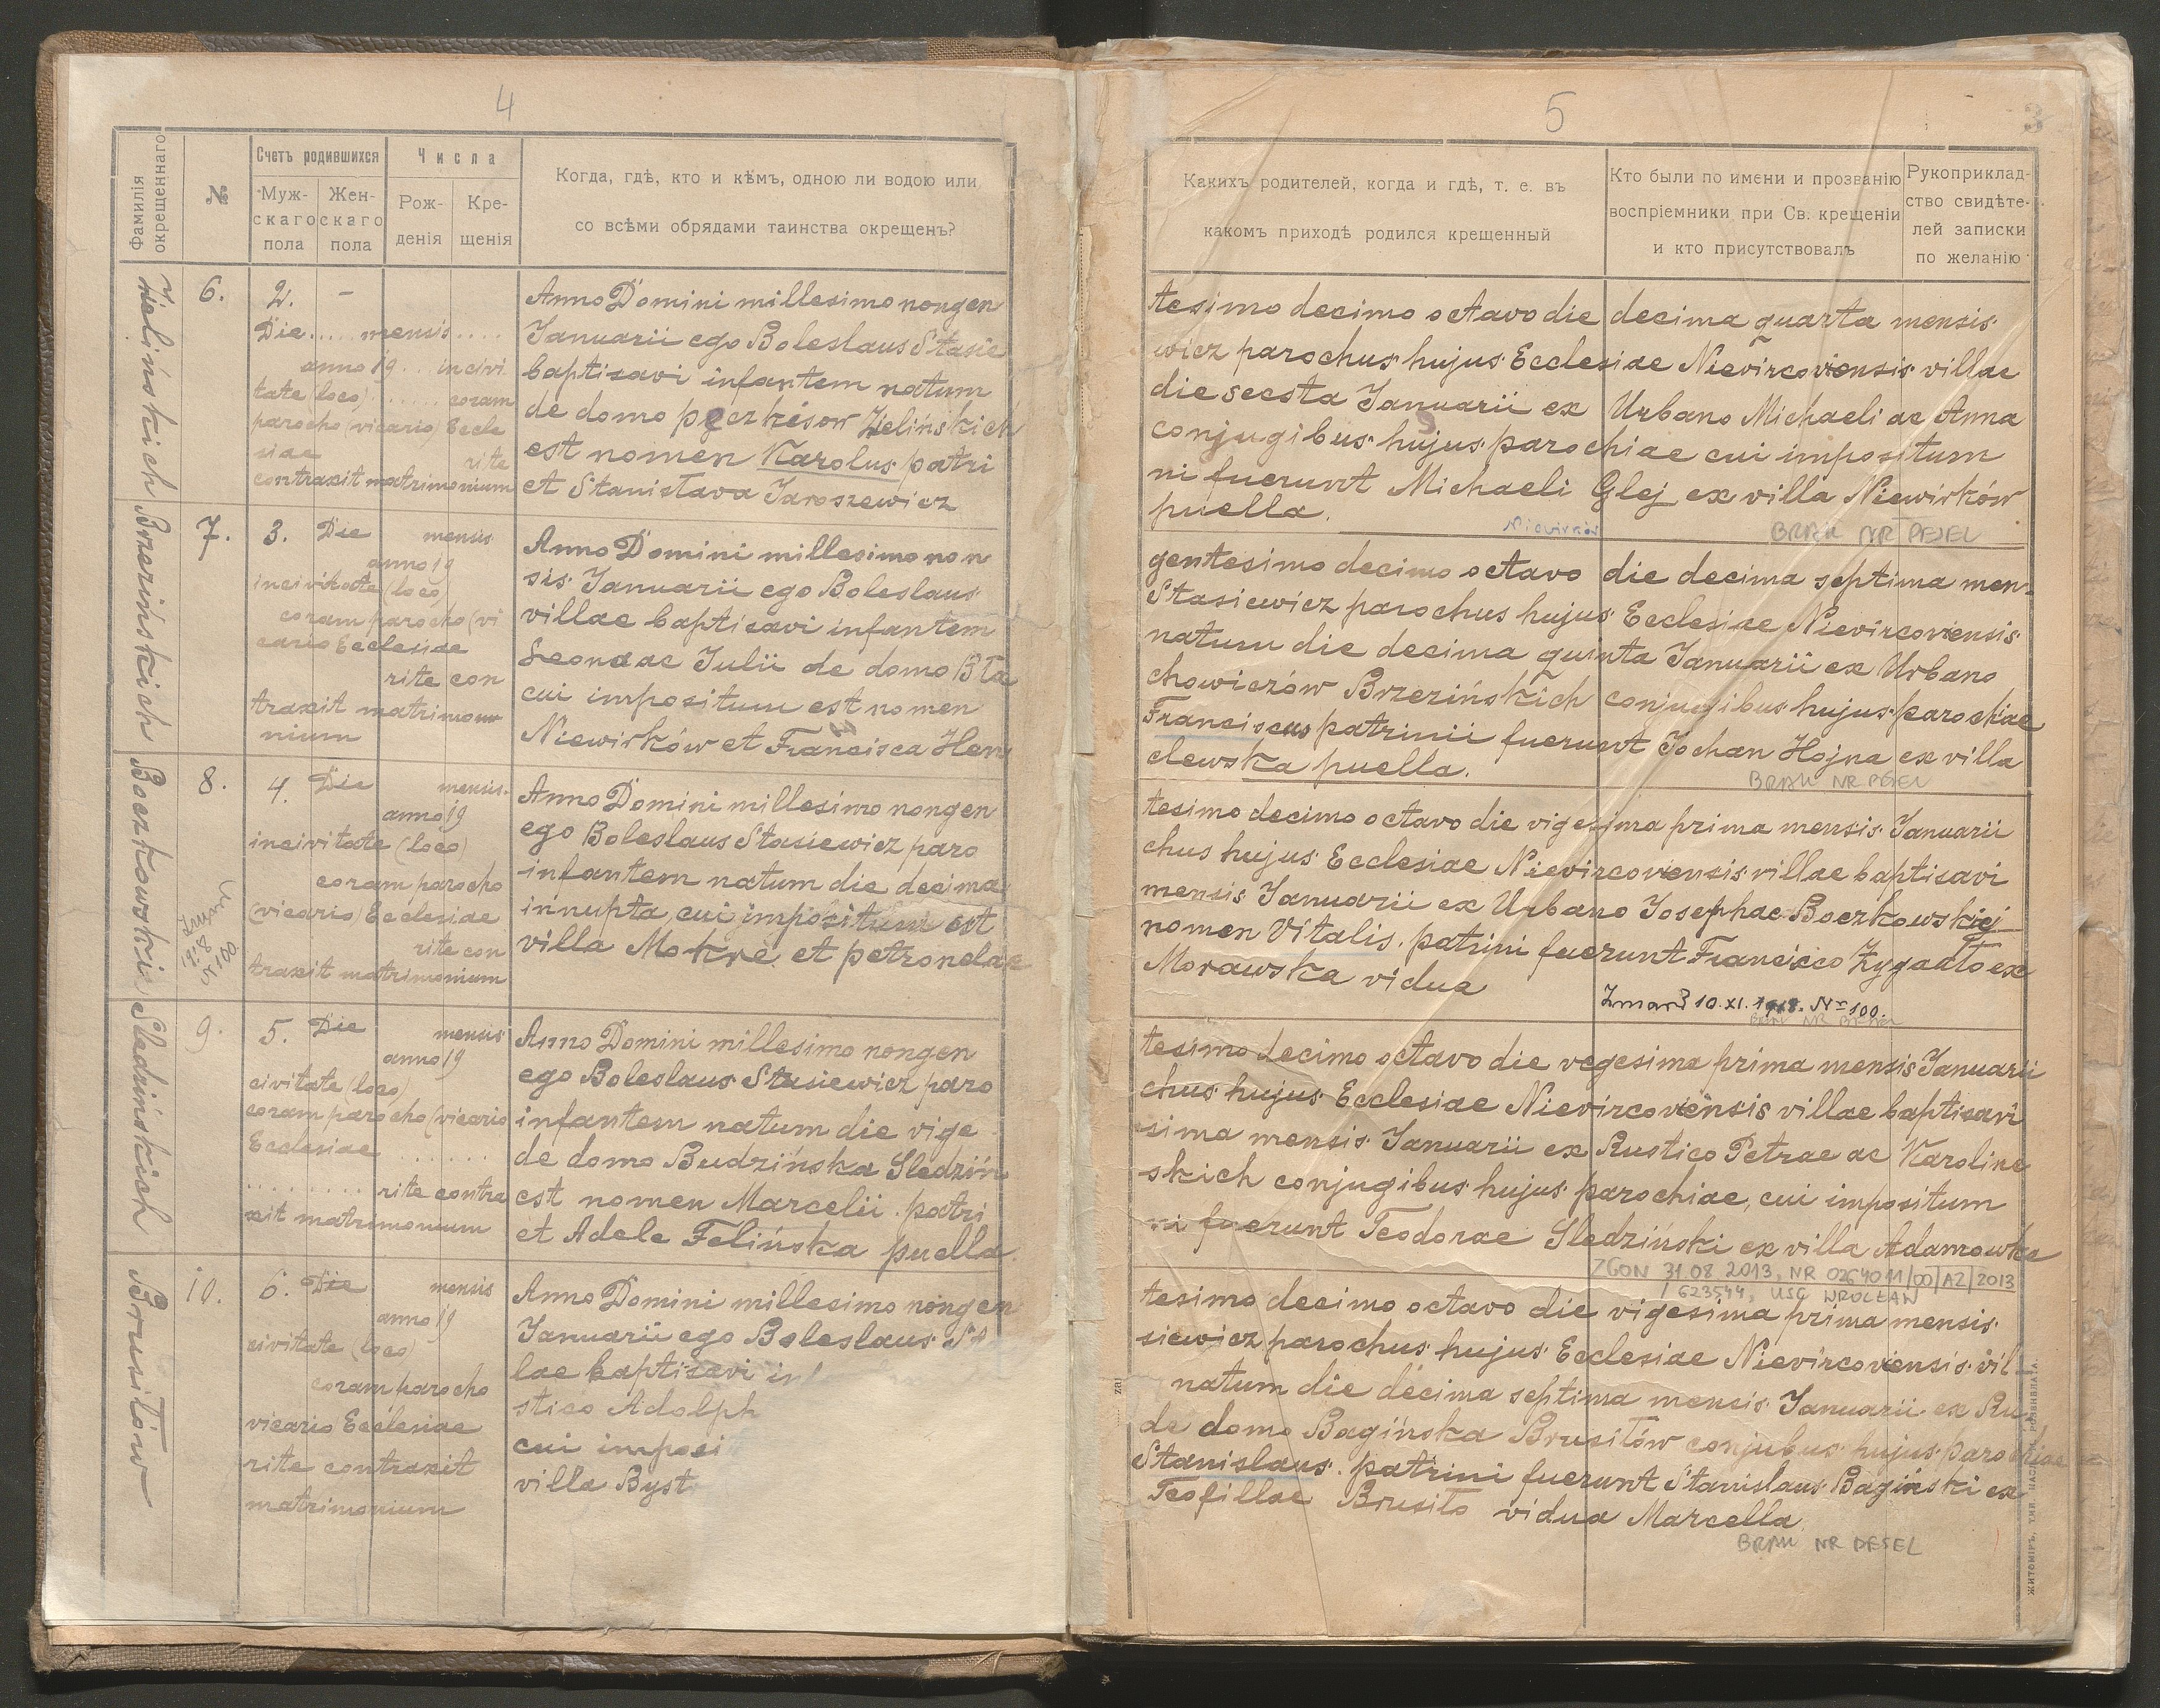 4
Фамилія
окрещеннаго
№
Счетъ родившихся
Муж-
скаго
пола
Жен-
скаго
пола
Числа
Рож-
денія
Кре-
щенія
Когда, гдѣ, кто и кѣмъ, одною ли водою или
со всѣми обрядами таинства окрещенъ?
Zielińskich
6.
2. -
Die ..... mensis ....
anno 19 .. in civi
tate (loco) ...... coram
parocho (vicario) Eccle
siae rite
contraxit matrimonium
Anno Domini millesimo nongen
Januarii ego Boleslaus Stasie
baptisavi infantem natum
de domo Zielińskich
est nomen Karolus patri
et Stanisława Jaroszewicz
Brzezińskich
7.
3. Die mensis
anno 19
in civitate (loco)
coram parocho (vi
cario Ecclesiae
rite con
traxit matrimo
nium
Anno Domini millesimo non
sis Januarii ego Boleslaus
villae baptisavi infantem
Leona ac Julii de domo Bła
cui impositum est nomen
Niewirków et Francisca Hen
Boczkowski
8.
4. Die mensis
anno 19
in civitate (loco)
coram parocho
(vicario) Ecclesiae
rite con
traxit matrimonium
Anno Domini millesimo nongen
ego Boleslaus Stasiewicz paro
infantem natum die decima
innupta, cui impositum est
villa Mokre et petronelae
Sledzińskich
9.
5. Die mensis
anno 19
civitate (loco)
coram parocho (vicario
Ecclesiae ......
......... rite contra
xit matrimonium
Anno Domini millesimo nongen
ego Boleslaus Stasiewicz paro
infantem natum die vige
de domo Budzińska Sledziń
est nomen Marcelii. patri
et Adele Felińska puella.
Brusiłów
10.
6. Die mensis
anno 19
civitate (loco)
coram parocho
vicario Ecclesiae
rite contraxit
matrimonium
Anno Domini millesimo nongen
Januarii ego Boleslaus St
lae baptisavi in
stico Adolph
cui imposi
villa Byst
5
3
Какихъ родителей, когда и гдѣ, т. е. въ
какомъ приходѣ родился крещенный
Кто были по имени и прозванію
воспріемники при Св. крещеніи
и кто присутствовалъ
Рукоприклад-
ство свидѣте-
лей записки
по желанію
tesimo decimo octavo die decima quarta mensis
wicz parochus hujus Ecclesiae Nievircoviensis villae
die secsta Januarii ex Urbano Michaeli ac Anna
conjugibus hujus parochiae cui impositum
ni fuerunt Michaeli Glej ex villa Niewirków
puella.
Niewirków
BRAK NR PESEL
gentesimo decimo octavo die decima septima men-
Stasiewicz parochus hujus Ecclesiae Nievircoviensis
natum die decima quinta Januarii ex Urbano
chowiczów Brzezińskich conjugibus hujus parochiae
Franciscus patrinii fuerunt Jochan Hojna ex villa
clewska puella.
BRAK NR PESEL
tesimo decimo octavo die vigesima prima mensis Januarii
chus hujus Ecclesiae Nievircoviensis villae baptisavi
mensis Januarii ex Urbano Josephae Boczkowskiej
nomen Vitalis. patrini fuerunt Francisco Zygadło ex
Morawska vidua
Zmarł 10.XI.1918. Nr 100.
BRAK NR PESEL
tesimo decimo octavo die vegesima prima mensis Januarii
chus hujus Ecclesiae Nievircoviensis villae baptisavi
sima mensis Januarii ex Rustico Petrae ac Karoline
skich conjugibus hujus parochiae, cui impositum
ni fuerunt Teodorae Sledziński ex villa Adamowka
ZGON 31.08.2013, NR 0264011/00/AZ/2013
/ 623544, USC WROCŁAW
tesimo decimo octavo die vigesima prima mensis
siewicz parochus hujus Ecclesiae Nievircoviensis vil-
natum die decima septima mensis Januarii ex Ru-
de domo Bagińska Brusiłów conjubus hujus parochiae
Stanislaus. patrini fuerunt Stanislaus Bagiński ex
Teofillae Brusiło vidua Marcella.
BRAK NR PESEL